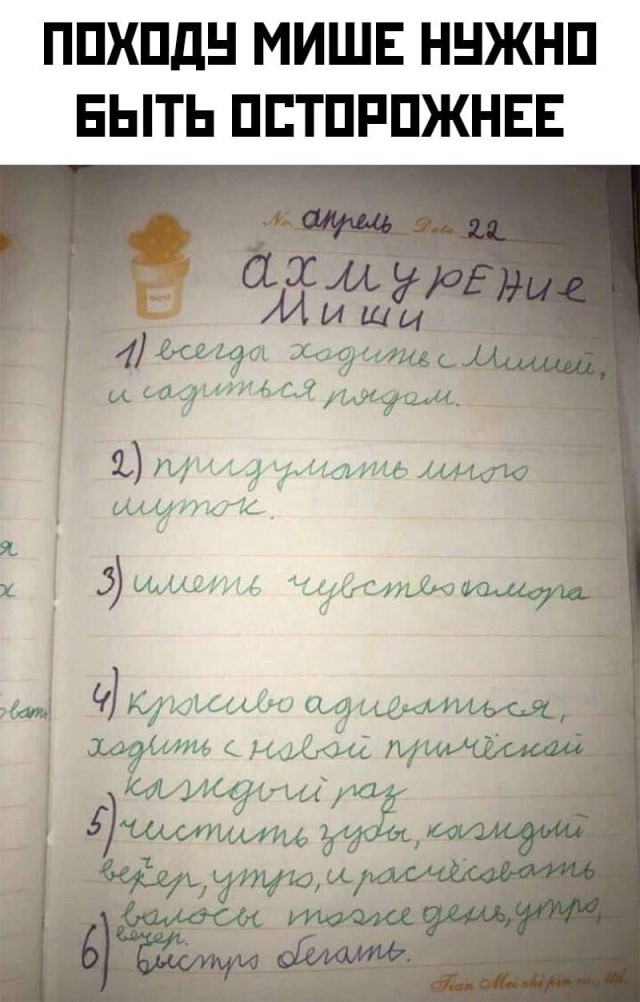 ПОХОДУ МИШЕ НУЖНО
БЫТЬ ОСТОРОЖНЕЕ
№ апрель Date 22
ахмурЕние
Миши
1) всегда ходить с Мишей,
и садиться рядом.
2) придумать много
шуток.
3) иметь чувство юмора
4) красиво адиваться,
ходить с новой причёской
каждый раз
5) чистить зубы, каждый
вечер, утро, и расчёсовать
волосы тоже день, утро,
вечер.
6) Быстро бегать.
я
х
овать
Tian Mei shi pin co., ltd.